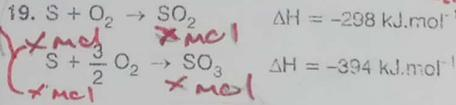 19. S + O₂ → SO₂ ΔH = -298 kJ.mol⁻¹
x mol x mol
S + 3/2 O₂ → SO₃ ΔH = -394 kJ.mol⁻¹
x mol x mol